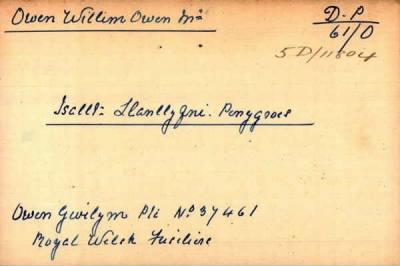 Owen Willim Owen Mr
D.P
61/O
5D/11804
Llanllyfni. Penygroes
Owen Gwilym Pte No 37461
Royal Welsh Fusiliers